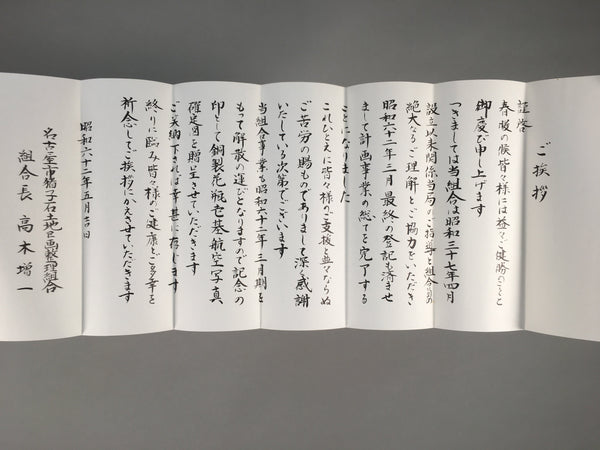 ご挨拶
謹啓
春暖の候皆々様には益々ご健勝のことと
御慶び申し上げます
つきましては当組合は昭和三十七年四月
設立以来関係当局のご指導と組合員の
絶大なるご理解とご協力をいただき
昭和六十二年三月最終の登記も済ませ
まして計画事業の総てを完了する
ことになりました
これひとえに皆々様のご支援と並々ならぬ
ご苦労の賜ものでありまして深く感謝
いたしている次第でございます
当組合事業も昭和六十二年三月期を
もって解散の運びとなりますので記念の
印として銅製花瓶壱基航空写真
確定図を贈呈させていただきます
ご笑納下されば幸甚に存じます
終りに臨み皆々様のご健康とご多幸を
祈念してご挨拶にかえさせていただきます
昭和六十二年五月吉日
名古屋市猪子石土地区画整理組合
組合長 高木増一